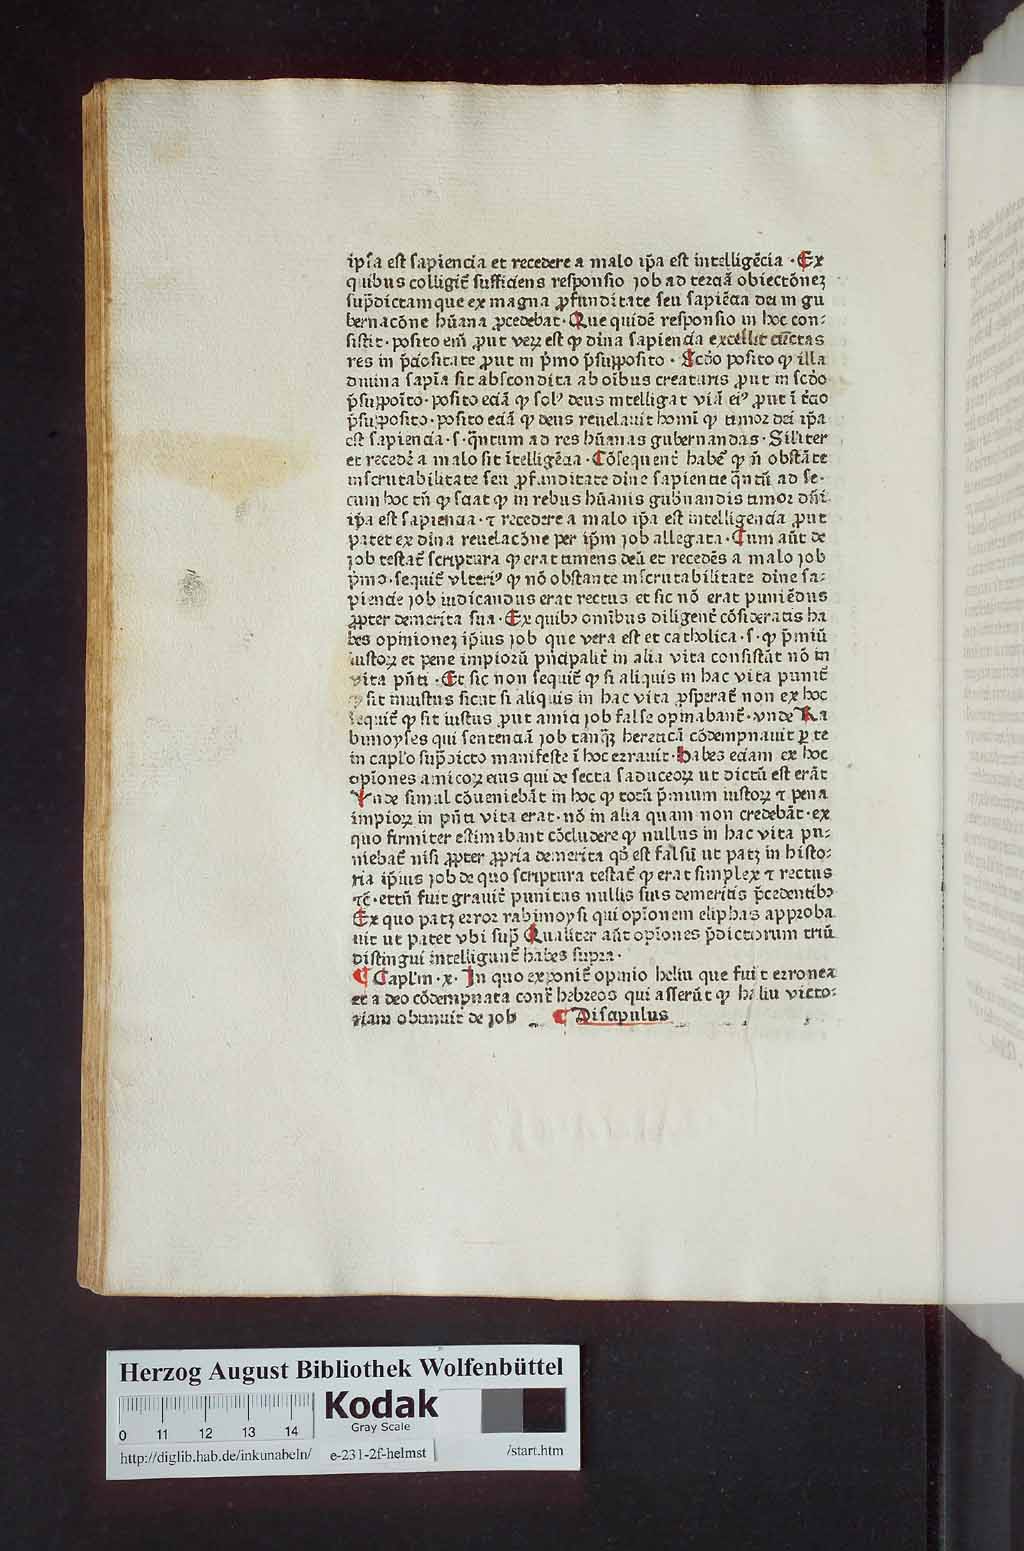 ipsa est sapiencia et recedere a malo ip̄a est intelligēcia · Ex
quibus colligit᷒ sufficiens responsio job ad terciā obiectōnez
sup̄dictam que ex magna ꝓfunditate seu sapiēcia dei in gu
bernacōne hūana ꝓcedebat · Que quidē responsio in hoc con⸗
sistit · posito em̄ ꝓut veꝝ est ꝙ dīna sapiencia excellit cūctas
res in p̄ciositate ꝓut in p̄mo p̄supposito · Scd̄o posito ꝙ illa
diuina sapīa sit abscondita ab oībus creaturis ꝓut in scd̄o
p̄suppoīto · posito eciā ꝙ solꝰ deus intelligat viā eiꝰ ꝓut ī t̄cio
p̄supposito · posito eciā ꝙ deus reuelauit homī ꝙ timor dei ip̄a
est sapiencia · s · q̄ntum ad res hūanas gubernandas · Silīter
et recedēr a malo sit ītelligēcia · Cōsequent᷒ habet᷒ ꝙ n̄ obstāte
inscrutabilitate seu ꝓfunditate diīne sapiencie q̄ntū ad se ·
cum hoc tn̄ ꝙ sciat ꝙ in rebus hūanis gub̄nandis timor dn̄i
ip̄a est sapiencia · ⁊ recedere a malo ip̄a est intelligencia ꝓut
patet ex dīna reuelacōne per ip̄m job allegata · Cum aūt de
job testat᷒ scriptura ꝙ erat timens deū et recedēs a malo job
p̄mo · sequit᷒ vlteriꝰ ꝙ nō obstante inscrutabilitate dīne sa⸗
piencie job iudicandus erat rectus et sic nō erat puniēdus
ꝓpter demerita sua · Ex quibꝫ omībus diligent᷒ cōsideratis ha
bes opinionez ip̄ius job que vera est et catholica · s · ꝙ p̄miū
iustoꝝ et pene impiorū pn̄cipalit᷒ in alia vita consistāt nō in
vita pn̄ti · Et sic non sequit᷒ ꝙ si aliquis in hac vita punit᷒
ꝙ sit iniustus sicut si aliquis in hac vita ꝓsperat᷒ non ex hoc
sequit᷒ ꝙ sit iustus ꝓut amici job false opinabant᷒ · vnde Ra
bimoyses qui sentenciā job tanqꝫ hereticā cōdempnauit ꝑ te
in capl'o sup̄dicto manifeste ī hoc errauit · Habes eciam ex hoc
opīones amicoꝝ eius qui de secta saduceoꝝ ut dictū est erāt
Vnde simul cōueniebāt in hoc ꝙ totū p̄mium iustoꝝ ⁊ pena
impioꝝ in pn̄ti vita erat · nō in alia quam non credebāt · ex
quo firmiter estimabant cōcludere ꝙ nullus in hac vita pu⸗
niebat᷒ nisi ꝓpter ꝓpria demerita qd̄ est falsū ut patꝫ in histo⸗
ria ip̄ius job de quo scriptura testat᷒ ꝙ erat simplex ⁊ rectus
⁊c̄ · et tn̄ fuit grauit᷒ punitus nullis suis demeritis p̄cedentibꝫ
Ex quo patꝫ error rabimoysi qui opīonem eliphas approba
uit ut patet vbi sup̄ Qualiter aūt opīones p̄dictorum triū
distingui intelligunt᷒ habes supra ·
¶ Capl'm · x · In quo exponit᷒ opinio heliu que fuit erronea
et a deo cōdempnata cont᷒ hebreos qui asserūt ꝙ heliu victo⸗
riam obtinuit de job ¶ Discipulus
Herzog August Bibliothek Wolfenbüttel
Kodak
Gray Scale
0 11 12 13 14
http://diglib.hab.de/inkunabeln/ e-231-2f-helmst /start.htm